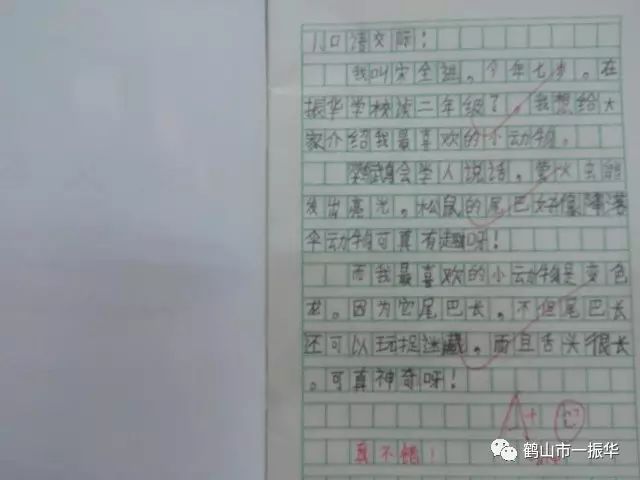 八口语交际!
我叫宋全,今年七岁。在
振华学校读二年级了。我想给大
家介绍我最喜欢的小动物。
鹦鹉会学人说话。萤火虫能
发出亮光。松鼠的尾巴好像降落
伞动物可真有趣呀!
而我最喜欢的小动物是变色
龙。因为它尾巴长。不但尾巴长
还可以玩捉迷藏。而且舌头很长
。可真神奇呀!
A+
真不错!
鹤山市一振华